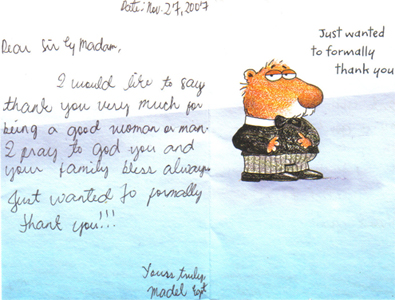 Date: Nov. 27, 2007
Dear Sir / Madam,
I would like to say
thank you very much for
being a good woman or man.
I pray to god you and
your family bless always.
Just wanted to formally
thank you!!!
Yours truly,
Madel
Just wanted
to formally
thank you